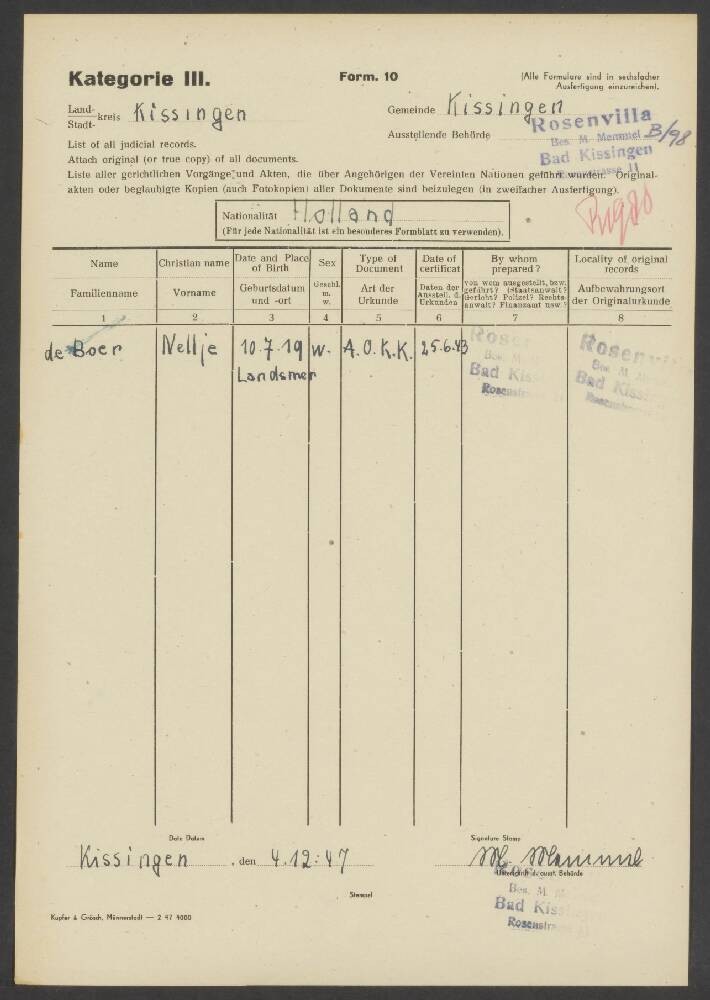 Kategorie III.
Form. 10
(Alle Formulare sind in sechsfacher
Ausfertigung einzureichen).
Land-
Stadt-
kreis Kissingen
Gemeinde Kissingen
Ausstellende Behörde
Rosenvilla
Bes. M. Memmel
Bad Kissingen
B/98
List of all judicial records.
Attach original (or true copy) of all documents.
Liste aller gerichtlichen Vorgänge und Akten, die über Angehörigen der Vereinten Nationen geführt wurden. Original-
akten oder beglaubigte Kopien (auch Fotokopien) aller Dokumente sind beizulegen (in zweifacher Ausfertigung).
Nationalität Holland
(Für jede Nationalität ist ein besonderes Formblatt zu verwenden).
Name
Christian name
Date and Place
of Birth
Sex
Type of
Document
Date of
certificat
By whom
prepared?
Locality of original
records
Familienname
Vorname
Geburtsdatum
und -ort
Geschl.
m.
w.
Art der
Urkunde
Daten der
Ausstell. d.
Urkunden
von wem ausgestellt, bzw.
geführt? (Staatsanwalt?
Gericht? Polizei? Rechts-
anwalt? Finanzamt usw.?
Aufbewahrungsort
der Originalurkunde
1 2 3 4 5 6 7 8
de Boer Nellje 10.7.19 w. A.O.K.K. 25.6.43
Landsmer
Bad Kis
Bad Kiss
Date Datum
Signature Stamp
Kissingen, den 4.12.47
M. Memmel
Unterschrift d. ausst. Behörde
Stempel
Bes. M
Bad Kis
Rosenstr
Kupfer & Grösch, Münnerstadt — 2 47 4000